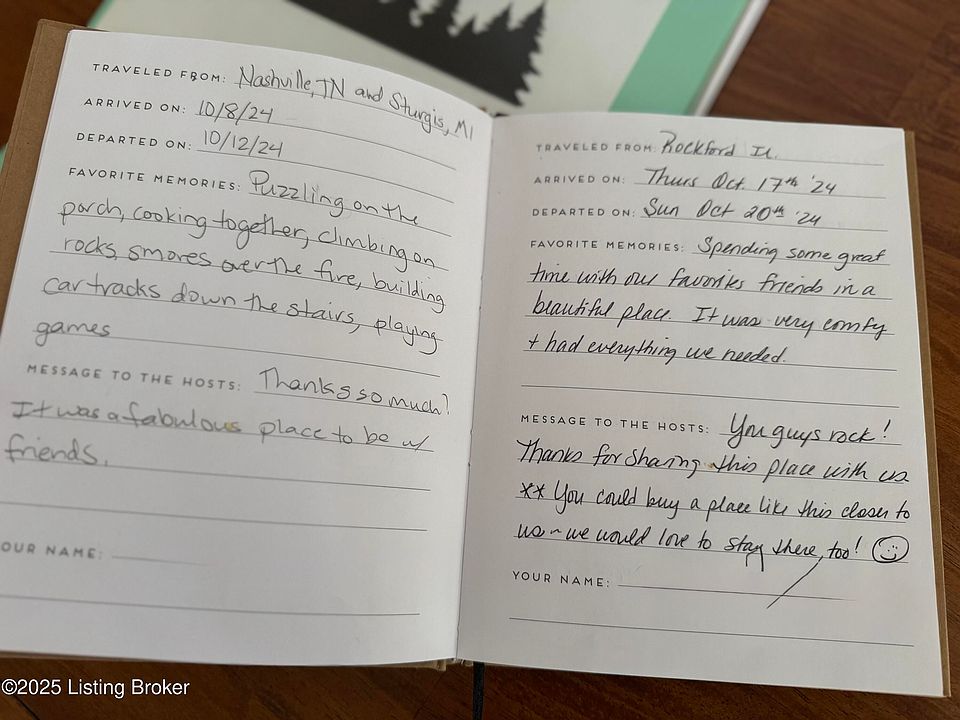 TRAVELED FROM: Nashville, TN and Sturgis, MI
ARRIVED ON: 10/8/24
DEPARTED ON: 10/12/24
FAVORITE MEMORIES: Puzzling on the
porch, cooking together, climbing on
rocks, smores over the fire, building
car tracks down the stairs, playing
games
MESSAGE TO THE HOSTS: Thanks so much!
It was a fabulous place to be w/
friends.
OUR NAME:
TRAVELED FROM: Rockford IL.
ARRIVED ON: Thurs Oct. 17th '24
DEPARTED ON: Sun Oct 20th '24
FAVORITE MEMORIES: Spending some great
time with our favorites friends in a
beautiful place. It was very comfy
+ had everything we needed.
MESSAGE TO THE HOSTS: You guys rock!
Thanks for sharing this place with us
** You could buy a place like this closer to
us ~ we would love to stay there, too!
YOUR NAME:
©2025 Listing Broker